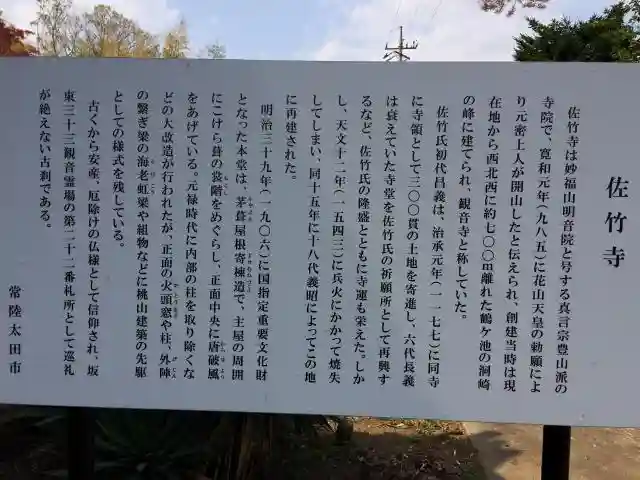 佐竹寺
佐竹寺は妙福山明音院と号する真言宗豊山派の
寺院で、寛和元年(九八五)に花山天皇の勅願によ
り元密上人が開山したと伝えられ、創建当時は現
在地から西北西に約七〇〇m離れた鶴ヶ池の洞崎
の峰に建てられ、観音寺と称していた。
佐竹氏初代昌義は、治承元年(一一七七)に同寺
に寺領として三〇〇貫の土地を寄進し、六代長義
は衰えていた寺堂を佐竹氏の祈願所として再興す
るなど、佐竹氏の隆盛とともに寺運も栄えた。しか
し、天文十二年(一五四三)に兵火にかかって焼失
してしまい、同十五年に十八代義昭によってこの地
に再建された。
明治三十九年(一九〇六)に国指定重要文化財
となった本堂は、茅葺屋根寄棟造で、主屋の周囲
にこけら葺の裳階をめぐらし、正面中央に唐破風
をあげている。元禄時代に内部の柱を取り除くな
どの大改造が行われたが、正面の火頭窓や柱、外陣
の繋ぎ梁の海老虹梁や組物などに桃山建築の先駆
としての様式を残している。
古くから安産、厄除けの仏様として信仰され、坂
東三十三観音霊場の第二十二番札所として巡礼
が絶えない古刹である。
常陸太田市